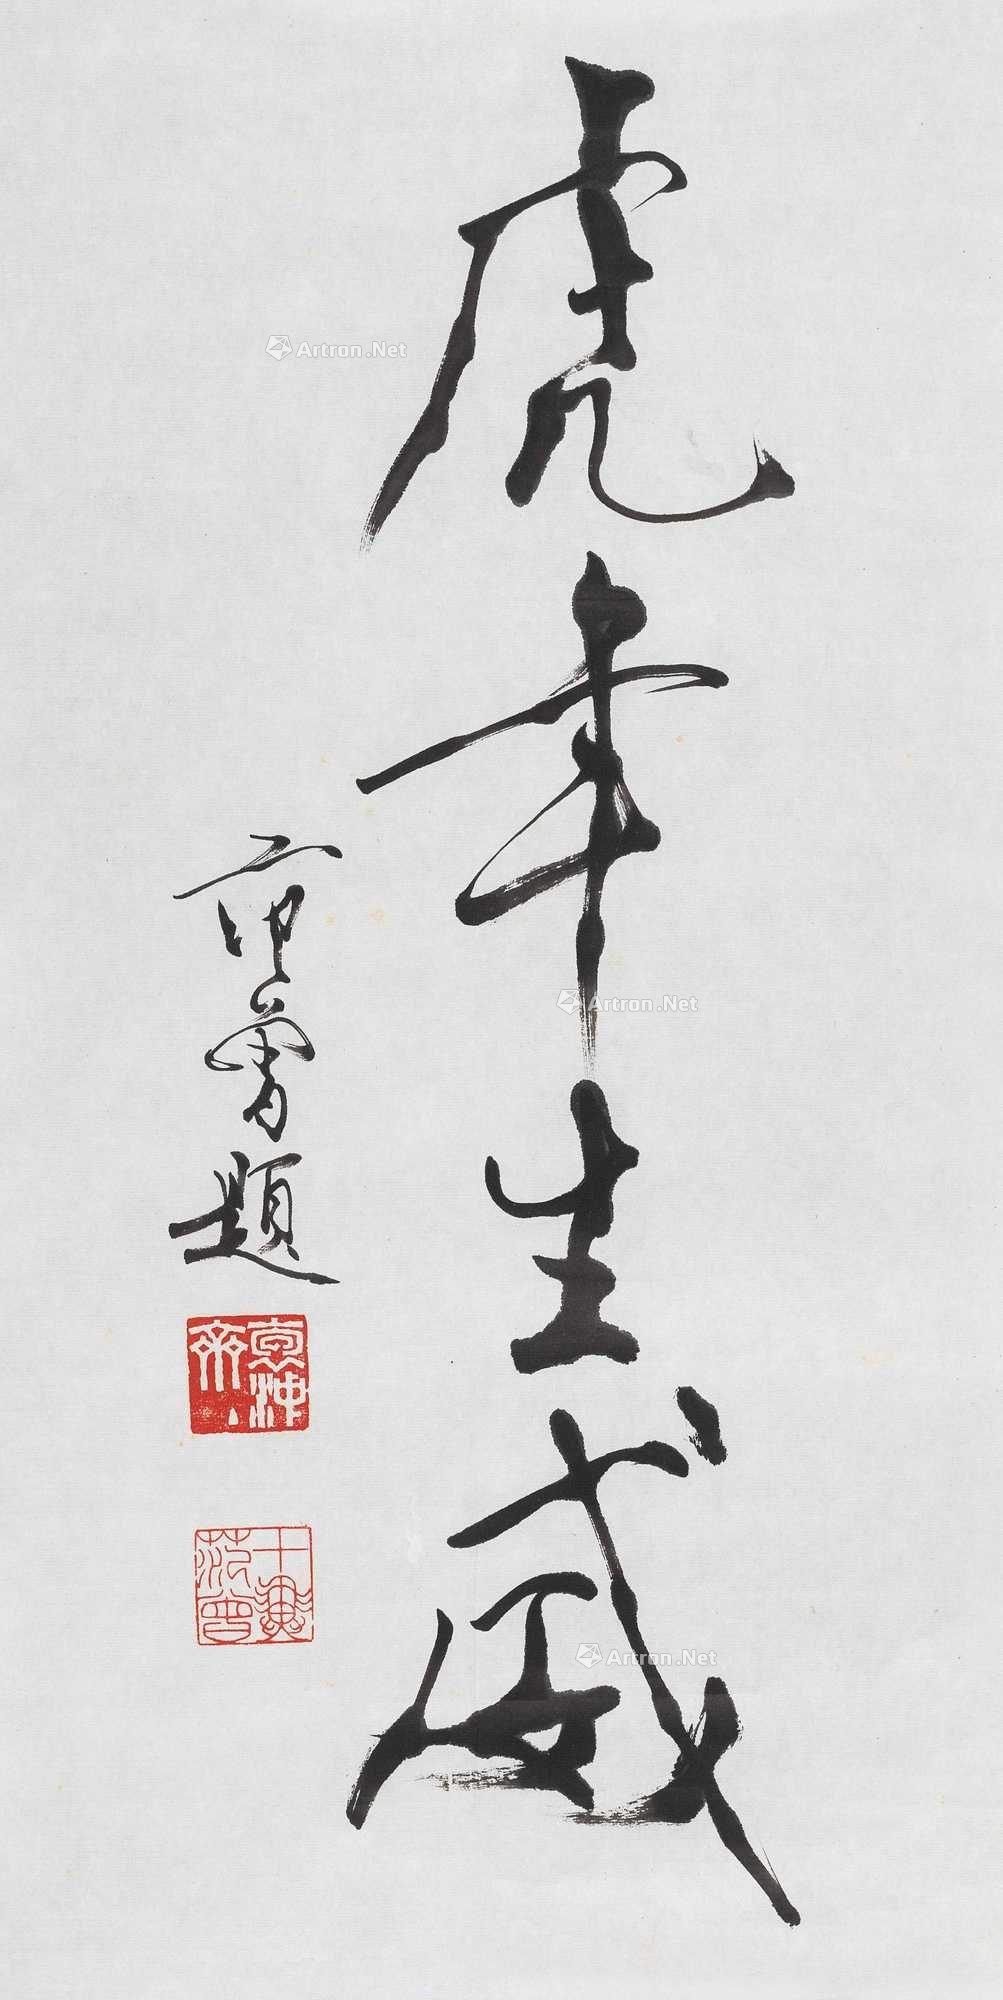 虎年生威
范曾題
十翼
范曾
Artron.Net
Artron.Net
Artron.Net